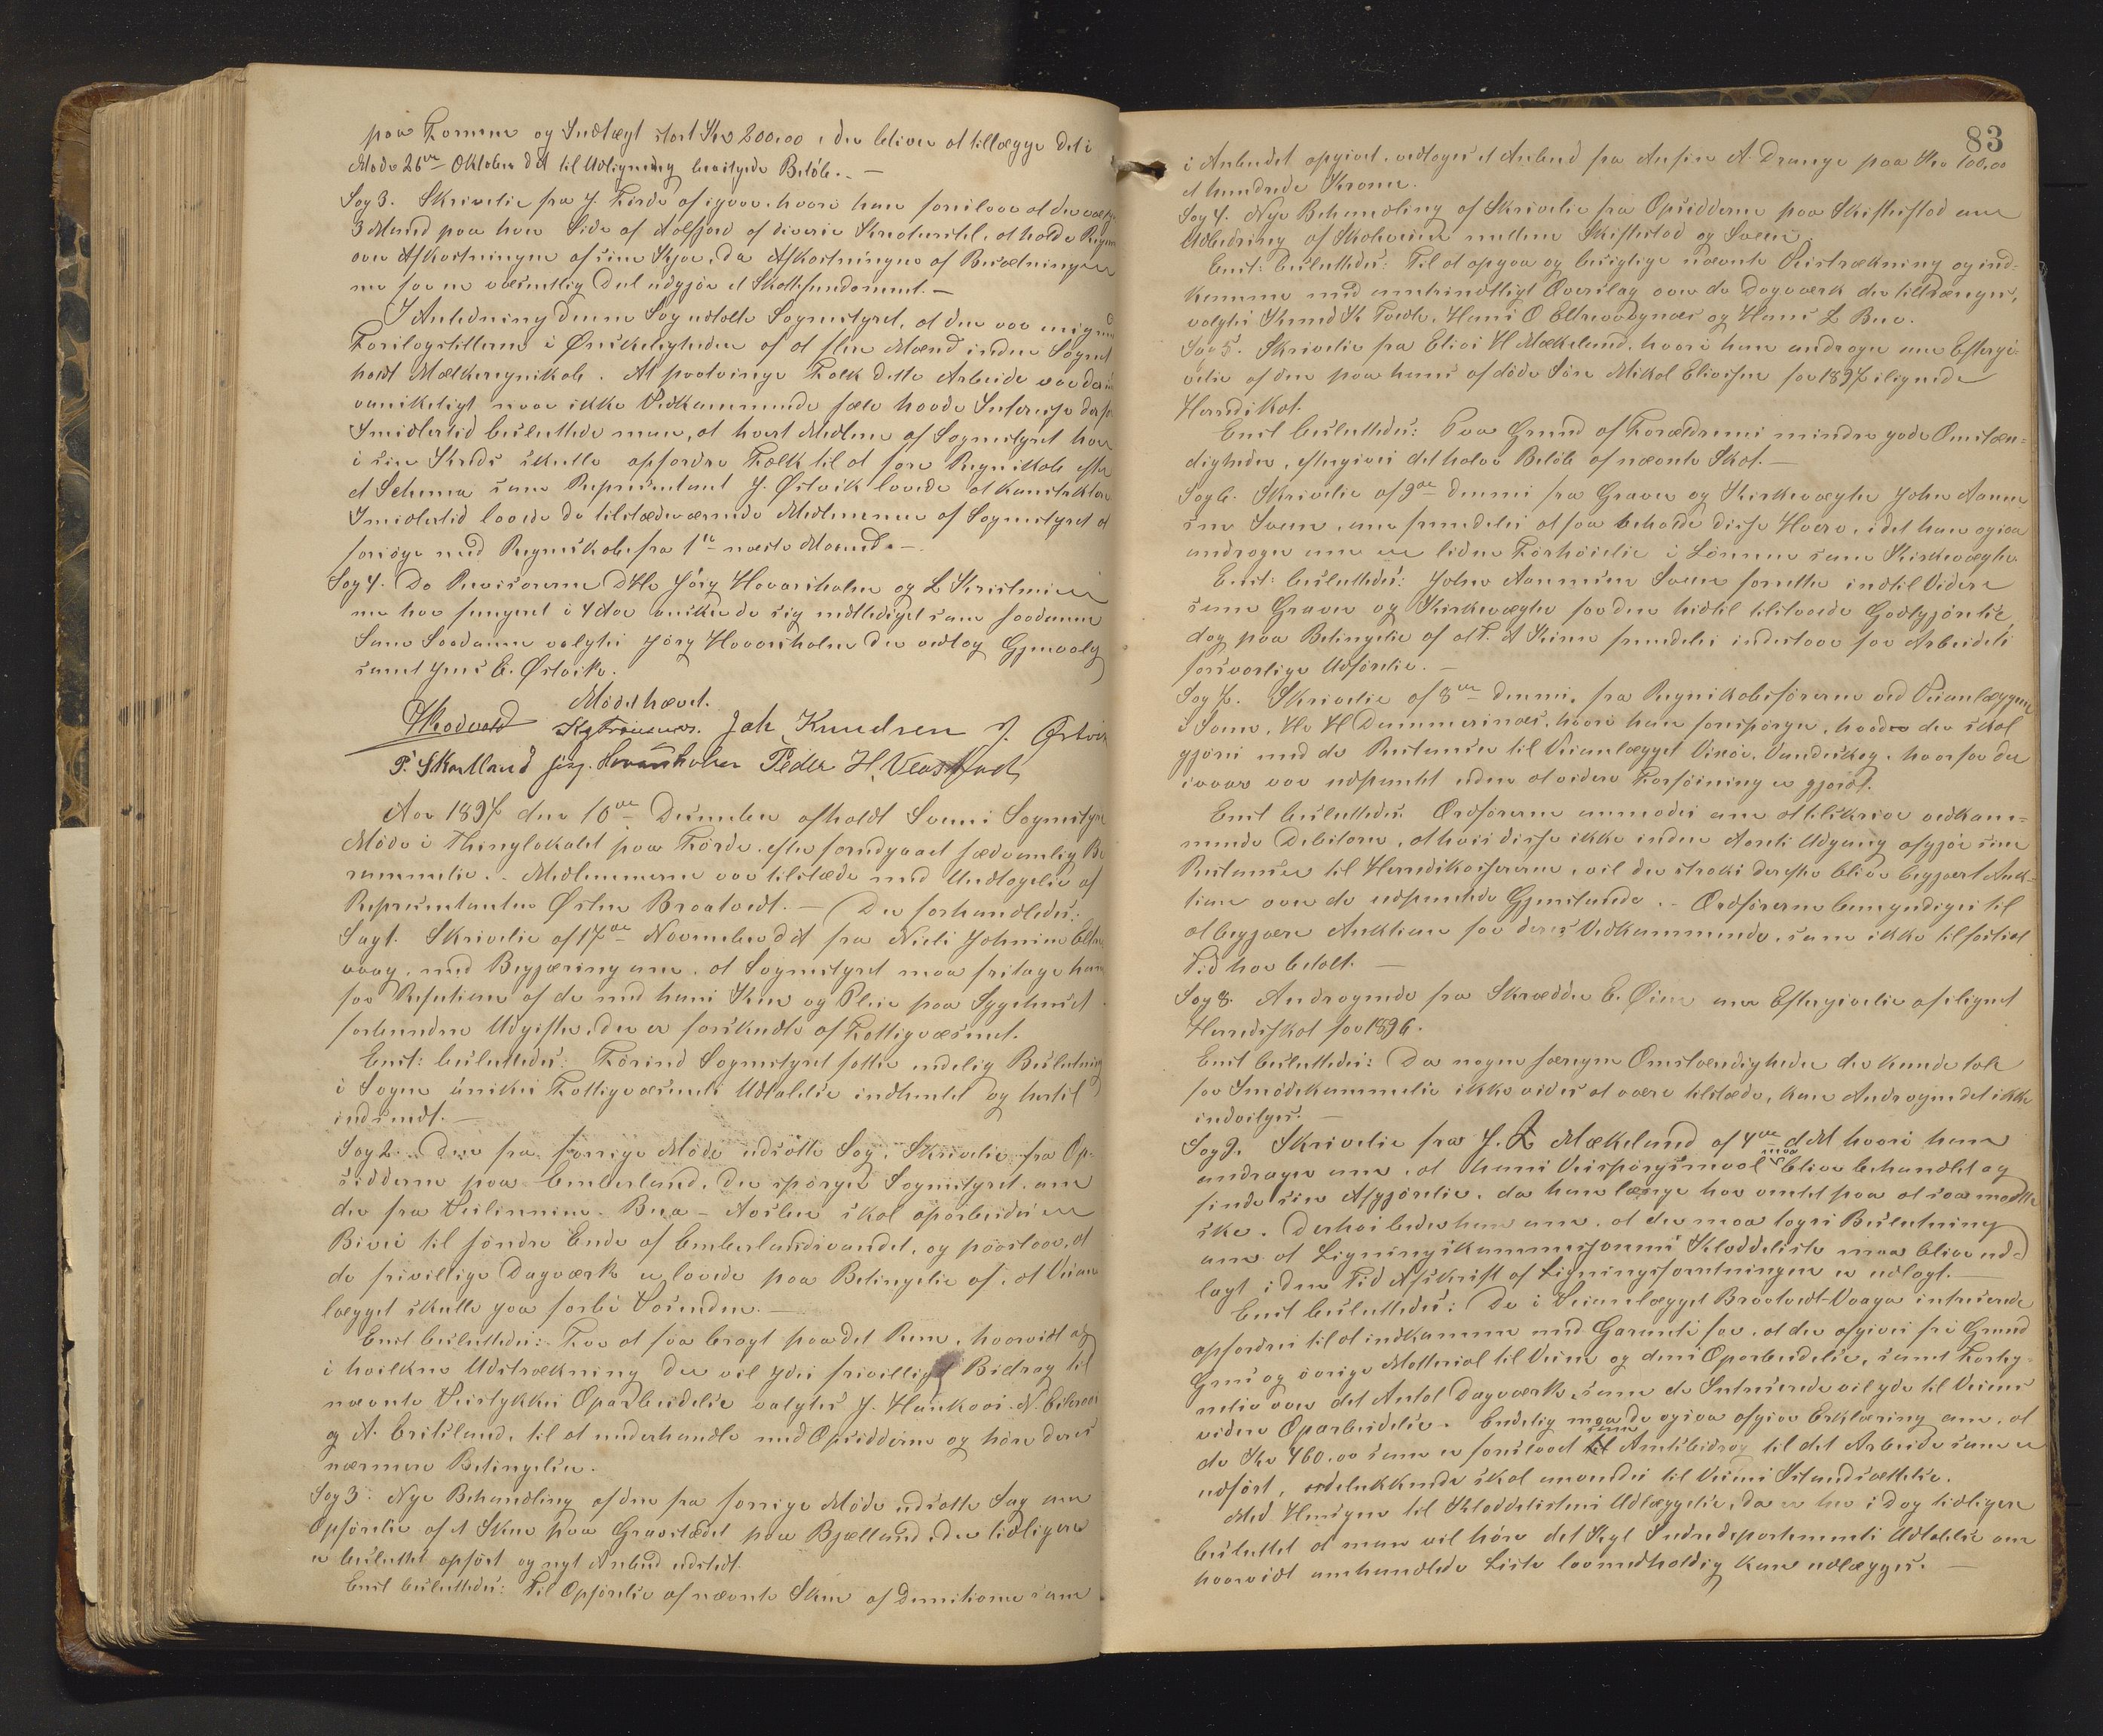 paa Formue og Indtægt stort Kr 200.00, der bliver at tillægge det i
Møde 26de Oktober d A til Udligning bevilgede Beløb. . —
Sag 3. Skrivelse fra J. Førde af igaar, hvori han foreslaar at der vælges
3 Mænd paa hver Side af Aalfjord af diverse Kreaturstel, at holde Regnsk
over Afkastningen af sine Kjør, da Afkastningen af Besætningen
nu for en væsentlig Del udgjør et Skattefundament. —
I Anledning denne Sag udtalte Sognestyret, at den var enig med
Forslagstilleren i Ønskeligheden af at flere Mænd inden Sognet
holdt Mælkeregnskab. At paatvinge Folk dette Arbeide var da
vanskeligt naar ikke Vedkommende selv havde Interesse derfor
Imidlertid besluttede man, at hvert Medlem af Sognestyret hver
i sin Kreds skulle opfordre Folk til at føre Regnskab efter
et Schema som Repræsentant J. Østvik lovede at konstruktere
Imidlertid lovede de tilstædeværende Medlemmer af Sognestyret at
forsøge med Regnskabe fra 1ste næste Maaned. —
Sag 4. Da Revisorerne DHr Jörg Hovarsholm og L Kristensen
nu har fungeret i 4 Aar ønskede de sig nedlediget som saadanne
Som Saadanne valgtes Jörg Hovarsholm der vedtog Gjenvalg
samt Jens E. Østvik.
Mødet hævet.
Joh Knudsen J. Østvik
P. Skartland Jörg. Hovarsholm Peder H. Veastad
Aar 1897 den 10de December afholdt Sveens Sognestyre
Møde i Thinglokalet paa Førde efter forudgaaet sædvanlig Be
rammelse. . Medlemmerne var tilstæde med Undtagelse af
Repræsentanten Østen Braatvedt. — Der forhandledes:
Sag 1. Skrivelse af 17de November d A fra Niels Johnsen Eltra
vaag, med Begjæring om, at Sognestyret maa fritage ham
for Refusion af de med hans Kur og Pleie paa Sygehuset
forbundne Udgifter, der er forskudte af Fattigvæsenet.
Enst: besluttedes: Førend Sognestyret fatter endelig Beslutning
i Sagen ønskes Fattigvæsenets Udtalelse indhentet og hertil
indsendt. —
Sag 2. Den fra forrige Møde udsatte Sag, Skrivelse fra Op-
sidderne paa Emberland, der spørger Sognestyret, om
der fra Veilinien Bua – Aasbu skal oparbeides en
Bivei til søndre Ende af Emberlandsvandet, og paastaar, at
de frivillige Dagværk er lovede paa Betingelse af, at Veian
lægget skulle gaa forbi Vaseuden. —
Enst besluttedes: For at faa bragt paa det Rene, hvorvidt og
i hvilken Udstrækning der vil ydes frivilligt Bidrag til
nævnte Veistykkes Oparbeidelse valgtes J. Haukaas N. Eileraas
og A. Erikland, til at underhandle med Opsidderne og høre deres
nærmere Betingelser.
Sag 3. Nye Behandling af den fra forrige Møde udsatte Sag om
Opførelse af et Skur paa Gravstædet paa Bjelland, der tidligere
er besluttet opført og nyt Anbud udstedt.
Enst besluttedes: Til Opførelse af nævnte Skur af Dimensioner som
83
i Anbudet opgivet, vedtoges et Anbud fra Ansten A Drange paa Kr 100,00
et hundrede Kroner.
Sag 4. Nye Behandling af Skrivelse fra Opsidderne paa Skiftestad om
Udbedring af Skoleveien mellem Skiftestad og Sveen.
Enst: besluttedes: Til at opgaa og besigtige nævnte Veistrækning og ind-
komme med omhændeligt Overslag over de Dagværk der tiltrænges,
valgtes Knud K Tveite, Hans O Eltravaagnæs og Hans L Buo.
Sag 5. Skrivelse fra Elias H Mækeland, hvori han androger om Eftergi-
velse af den paa hans afdøde Søn Mikal Eliassen for 1897 ilignede
Herredskat.
Enst besluttedes: Paa Grund af Forældrenes mindre gode Omstæn-
digheder, eftergives det halve Beløb af nævnte Skat. —
Sag 6. Skrivelse af 9de dennes fra Graver og Kirkevægter John Aamun
sen Sveen, om fremdeles at faa beholde disse Hverv, idet han ogsaa
androger om en liden Forhøielse i Lønnen som Kirkevægter.
Enst: besluttedes: John Aamunsen Sveen forretter indtil Videre
som Graver og Kirkevægter for den hidtil tilstaaede Godtgjørelse,
dog paa Betingelse af at P. A Steine fremdeles indestaar for Arbeidets
forsvarlige Udførelse. —
Sag 7. Skrivelse af 8de dennes, fra Regnskabsføreren ved Veianlæggene
i Sveen, Hr H Dommersnæs, hvori han forespørger, hvad der skal
gjøres med de Restancer til Veianlægget Viksø, Vandaskog, hvorfor der
ivaar var udpantet uden at videre Forføining er gjordt.
Enst besluttedes: Ordføreren anmodes om at tilskrive vedkom-
mende Debitorer, at hvis disse ikke inden Aarets Udgang afgjør sine
Restancer til Herredskassereren, vil der straks derefter blive begjært Auk-
tion over de udpantede Gjenstande. . Ordføreren bemyndiges til
at begjære Auktion for deres Vedkommende, som ikke til fastsat
Tid har betalt. —
Sag 8. Andragende fra Skræder E. Øien om Eftergivelse af ilignet
Herredskat for 1896.
Enst besluttedes: Da nogen særegne Omstændigheder der kunde tale
for Imødekommelse ikke vides at være tilstæde, kan Andragendet ikke
indvilges. —
Sag 9. Skrivelse fra J. L Mækeland af 4de d M hvori han
androger om, at hans Veispørgsmaal maa blive behandlet og
finde sin Afgjørelse, da han længe har ventet paa at saa maatte
ske. Derhos beder han om, at der maa tages Beslutning
om at Ligningskommissionens Kladdeliste maa blive ud-
lagt i den Tid Afskrift af Ligningsforretningen er udlagt. —
Enst besluttedes: De i Veianlægget Braatvedt-Vaaga interserede
opfordres til at indkomme med Garanti for, at der afgives fri Grund
Grus og øvrige Matterial til Veien og dens Oparbeidelse, samt Forteg-
nelse over det Antal Dagværk, som de Interserede vil yde til Veiens
videre Oparbeidelse. Endelig maa de ogsaa afgive Erklæring om, at
de Kr 460.00 som er foreslaaet som Amtsbidrag til det Arbeide som er
udført, udelukkende skal anvendes til Veiens Istandsættelse.
Med Hensyn til Kladdelistens Udlæggelse, da er her i dag tidligere
besluttet at man vil høre det Kgl Indredepartements Udtalelse om
hvorvidt omhandlede Liste lovmedholdig kan udlægges. —